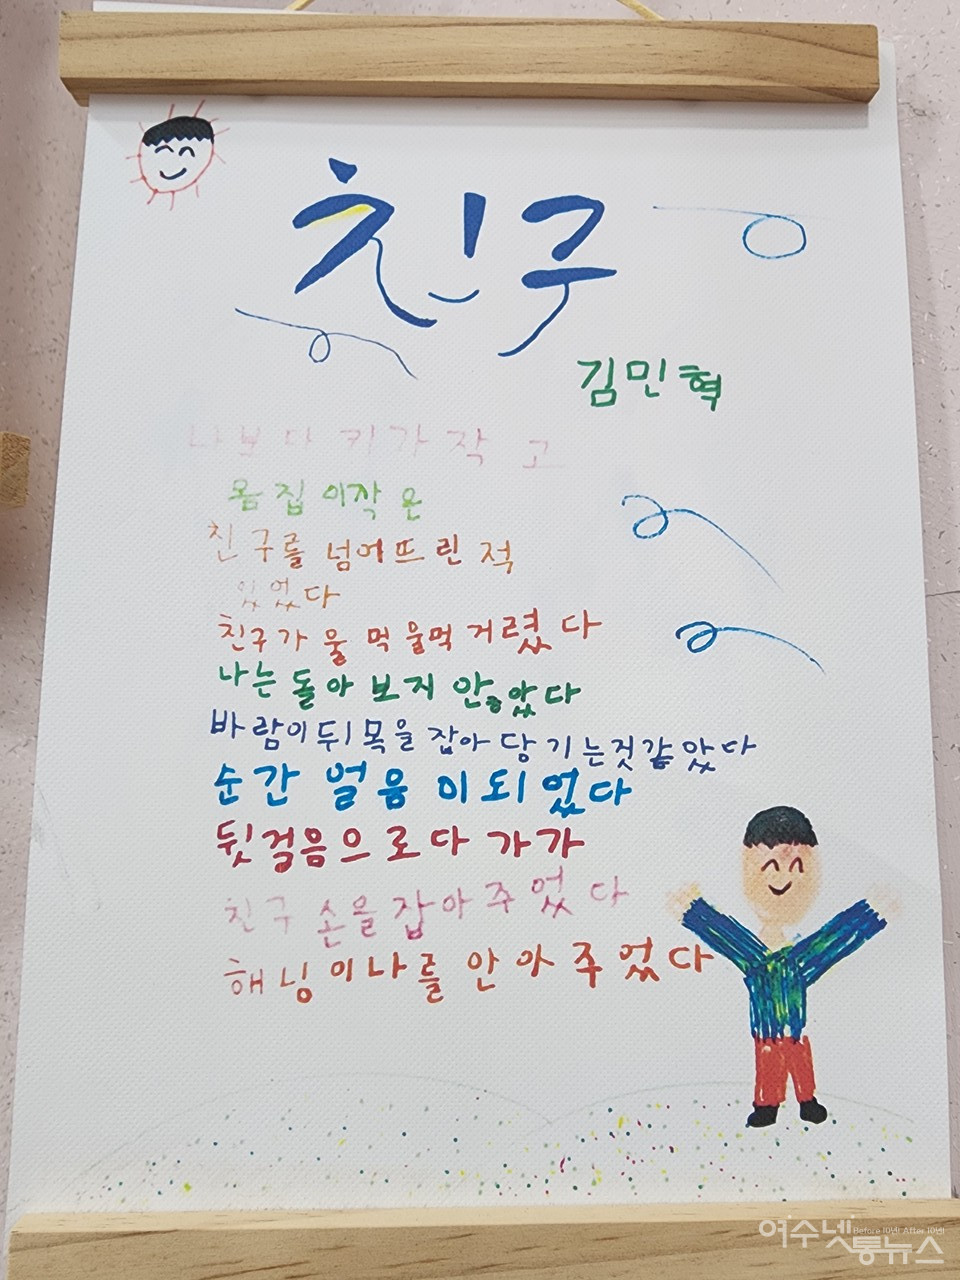 친구
김민혁
나보다 키가 작고
몸집이 작은
친구를 넘어뜨린 적
있었다
친구가 울먹울먹 거렸다
나는 돌아보지 않았다
바람이 뒤목을 잡아당기는것같았다
순간 얼음이되었다
뒷걸음으로다가가
친구 손을잡아주었다
해님이나를 안아주었다
여수넷통뉴스
Before 10년! After 10년!